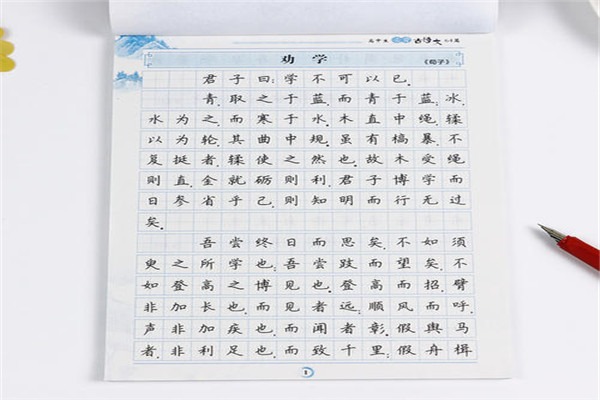 古诗文
劝学 《荀子》
君子曰:学不可以已。
青,取之于蓝,而青于蓝;冰,
水为之而寒于水。木直中绳,輮
以为轮,其曲中规。虽有槁暴,不
复挺者,輮使之然也。故木受绳
则直,金就砺则利,君子博学而
日参省乎己,则知明而行无过
矣。
吾尝终日而思矣,不如须
臾之所学也;吾尝跂而望矣,不
如登高之博见也。登高而招,臂
非加长也,而见者远;顺风而呼,
声非加疾也,而闻者彰。假舆马
者,非利足也,而致千里;假舟楫
1